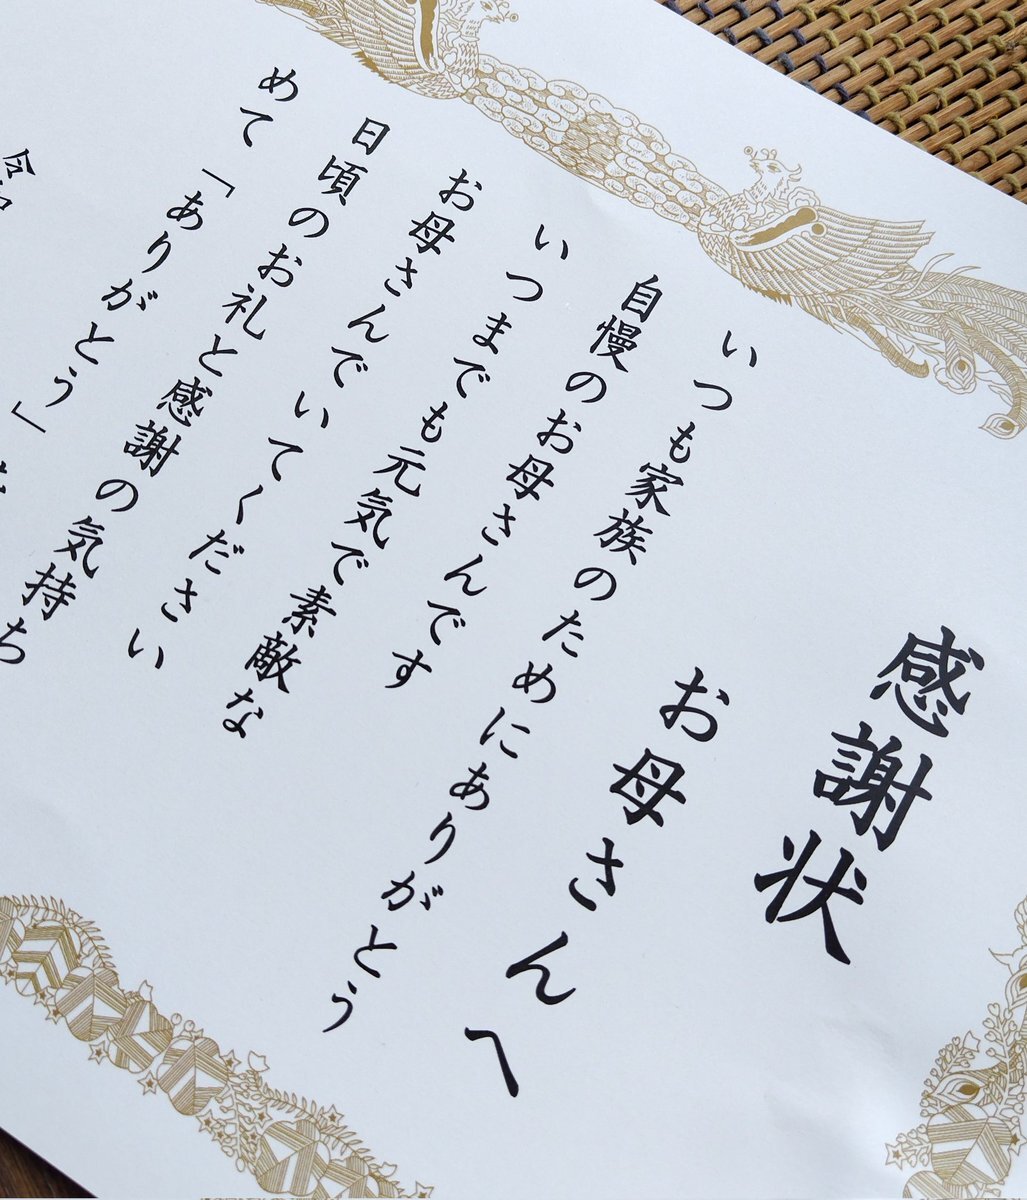 感謝状
お母さんへ
いつも家族のためにありがとう
自慢のお母さんです
いつまでも元気で素敵な
お母さんでいてください
日頃のお礼と感謝の気持ち
めて「ありがとう」
令和